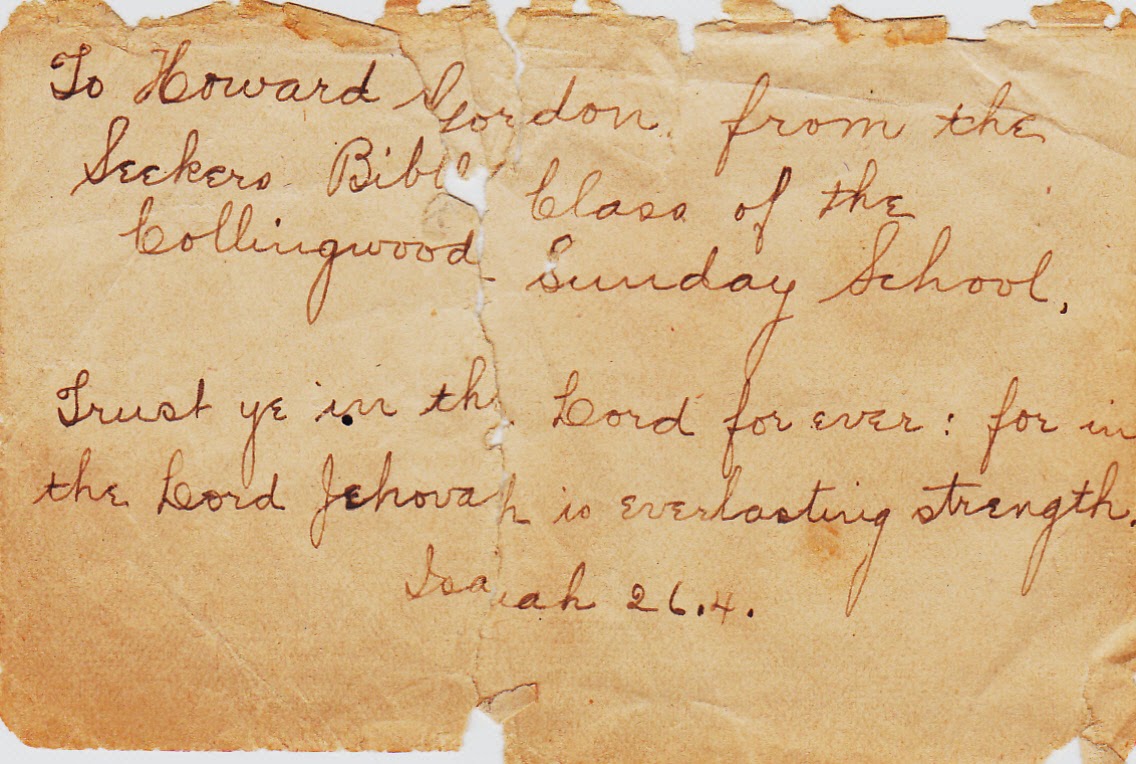 To Howard Gordon, from the
Seekers Bible Class of the
Collingwood Sunday School.
Trust ye in the Lord for ever: for in
the Lord Jehovah is everlasting strength.
Isaiah 26.4.